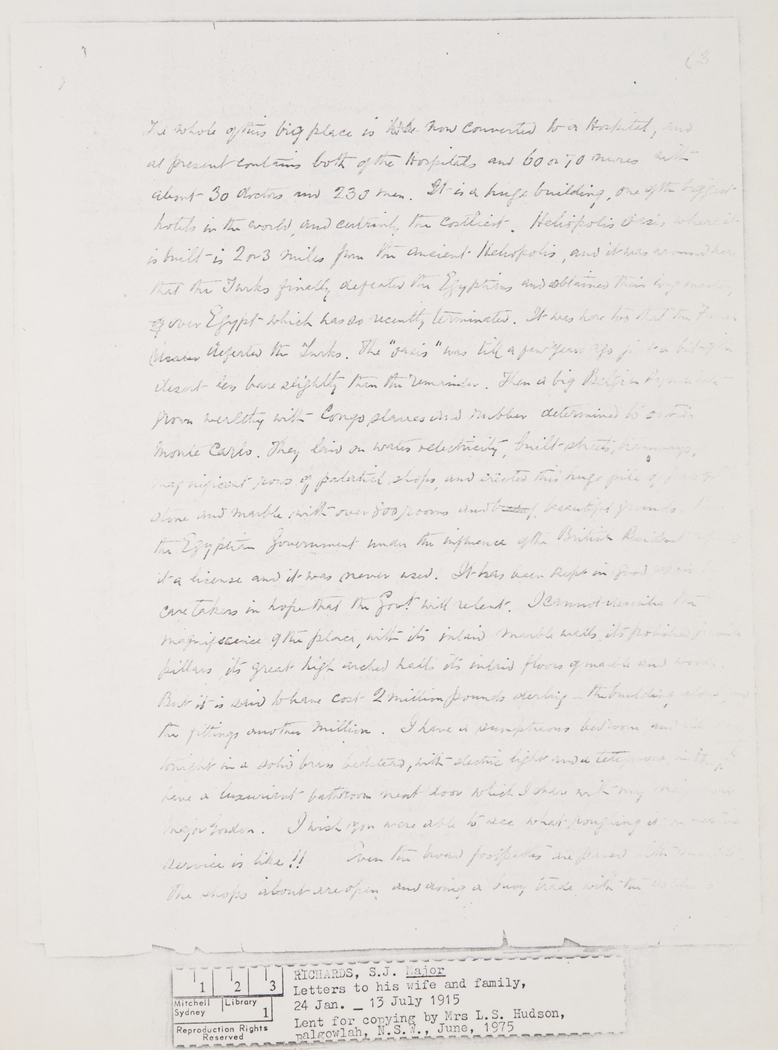 The whole of this big place is now converted to a Hospital, and
at present contains both of the Hospitals and 60 or 70 nurses with
about 30 doctors and 230 men. It is a huge building, one of the biggest
hotels in the world and certainly the costliest. Heliopolis Oasis where it
is built is 2 or 3 miles from the ancient Heliopolis, and it was around here
that the Turks finally defeated the Egyptians and obtained their
over Egypt which has so recently terminated. It was here too that the French
defeated the Turks. The "oasis" was till a few years ago just a bit of the
desert less bare slightly than the remainder. Then a big Belgian Syndicate
grown wealthy with Congo slaves and rubber determined to
Monte Carlo. They laid on water electricity, built streets, tramways,
magnificent rows of palatial shops, and erected this huge pile of
stone and marble with over 800 rooms and beautiful grounds.
the Egyptian Government under the influence of the British Resident
it a license and it was never used. It has been kept in good
care takers in hope that the Govt will relent. I cannot describe the
magnificence of the place, with its inlaid marble walls, its polished
pillars, its great high arched halls its inlaid floors of marble and wood.
But it is said to have cost 2 million pounds sterling - the building alone, and
the fittings another million. I have a sumptuous bedroom and
tonight in a solid brass bedstead, with electric light and a telephone,
have a luxuriant bathroom next door which I share with my
Major Gordon. I wish you were able to see what roughing it on
service is like!! Even the broad footpaths are paved with
The shops about are open and doing a busy trade with the
63
1 2 3
Mitchell Library
Sydney 1
Reproduction Rights
Reserved
RICHARDS, S.J. Major
Letters to his wife and family,
24 Jan. _ 13 July 1915
Lent for copying by Mrs L.S. Hudson,
palgowlah, N.S.W., June, 1975